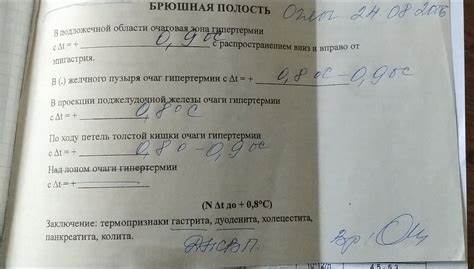 БРЮШНАЯ ПОЛОСТЬ 24.08.2016
В подложечной области очаговая зона гипертермии
с Δt = + 0,9 °C с распространением вниз и вправо от
эпигастрия.
В (.) желчного пузыря очаг гипертермии с Δt = + 0,8 °C – 0,9 °C
В проекции поджелудочной железы очаги гипертермии
с Δt = + 0,8 °C
По ходу петель толстой кишки очаги гипертермии
с Δt = + 0,8 – 0,9 °C
Над лоном очаги гипертермии
с Δt = +
(N Δt до + 0,8°C)
Заключение: термопризнаки гастрита, дуоденита, холецестита,
панкреатита, колита.
Вр: